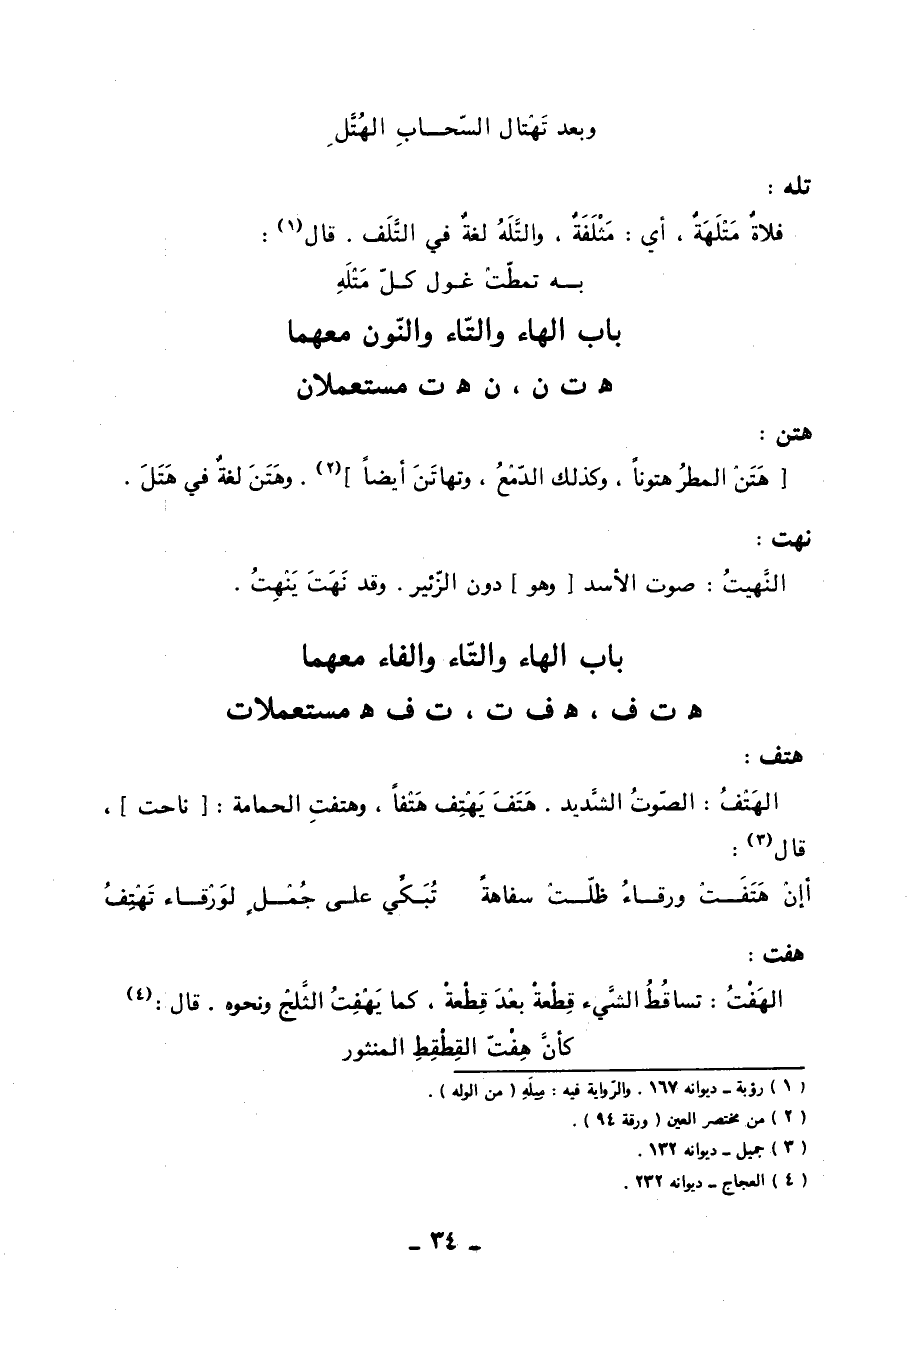 وبعد تَهْتال السّحــاب الهُتَّلِ
تله :
فلاةٌ مَتْلَهَةٌ ، أي : مَتْلَفَةٌ ، والتَّلَهُ لغةٌ في التَّلَف . قال(١) :
بــه تمطّتْ غـول كـلّ مَتْلَهِ
باب الهاء والتّاء والنّون معهما
ﻫ ت ن ، ن ﻫ ت مستعملان
هتن :
[ هَتَنْ المطرُ هتوناً ، وكذلك الدّمْعُ ، وتهاتَنَ أيضاً ](٢) . وهَتَنَ لغةٌ في هَتَلَ .
نهت :
النَّهيتُ : صوت الأسد [ وهو ] دون الزّئير . وقد نَهَتَ يَنْهِتُ .
باب الهاء والتّاء والفاء معهما
ﻫ ت ف ، ﻫ ف ت ، ت ف ﻫ مستعملات
هتف :
الهَتْفُ : الصّوتُ الشّديد . هَتَفَ يَهْتِف هَتْفاً ، وهتفتِ الحمامة : [ ناحت ] ،
قال(٣) :
أإنْ هَتَفَــتْ ورقــاءُ ظلّــتْ سفاهةً تُبَـكِّي علـى جُمْـلٍ لوَرْقـاء تَهْتِفُ
هفت :
الهَفْتُ : تساقُطُ الشَّيء قِطْعةْ بعْدَ قِطْعةْ ، كما يَهْفِتُ الثَّلجْ ونحوه . قال :(٤)
كأنَّ هِفْتّ القِطْقِطِ المنثور
( ١ ) رؤبة ــ ديوانه ١٦٧ . والرّواية فيه : مِيلَهِ ( من الوله ) .
( ٢ ) من مختصر العين ( ورقة ٩٤ ) .
( ٣ ) جميل ــ ديوانه ١٣٢ .
( ٤ ) العجاج ــ ديوانه ٢٣٢ .
ــ ٣٤ ــ